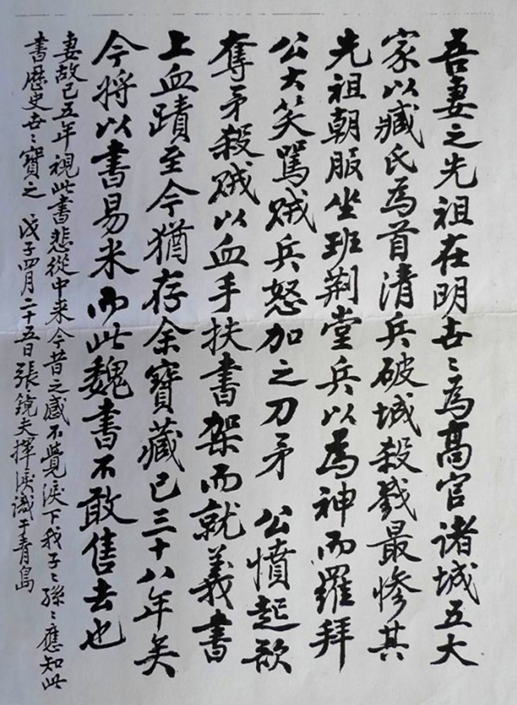 吾妻之先祖在明世〻為高官诸城五大
家以臧氏為首清兵破城殺戮最慘其
先祖朝服坐班荆堂兵以為神而羅拜
公大笑罵贼兵怒加之刀矛 公憤起欲
奪矛殺贼以血手扶書架而就義書
上血蹟至今猶存余寶藏已三十八年矣
今将以書易米而此魏書不敢售去也
妻故已五年視此書悲從中来今昔之感不覺淚下我子〻孫〻應知此
書歷史世〻寶之 戊子四月二十五日張鏡夫揮淚識于青島